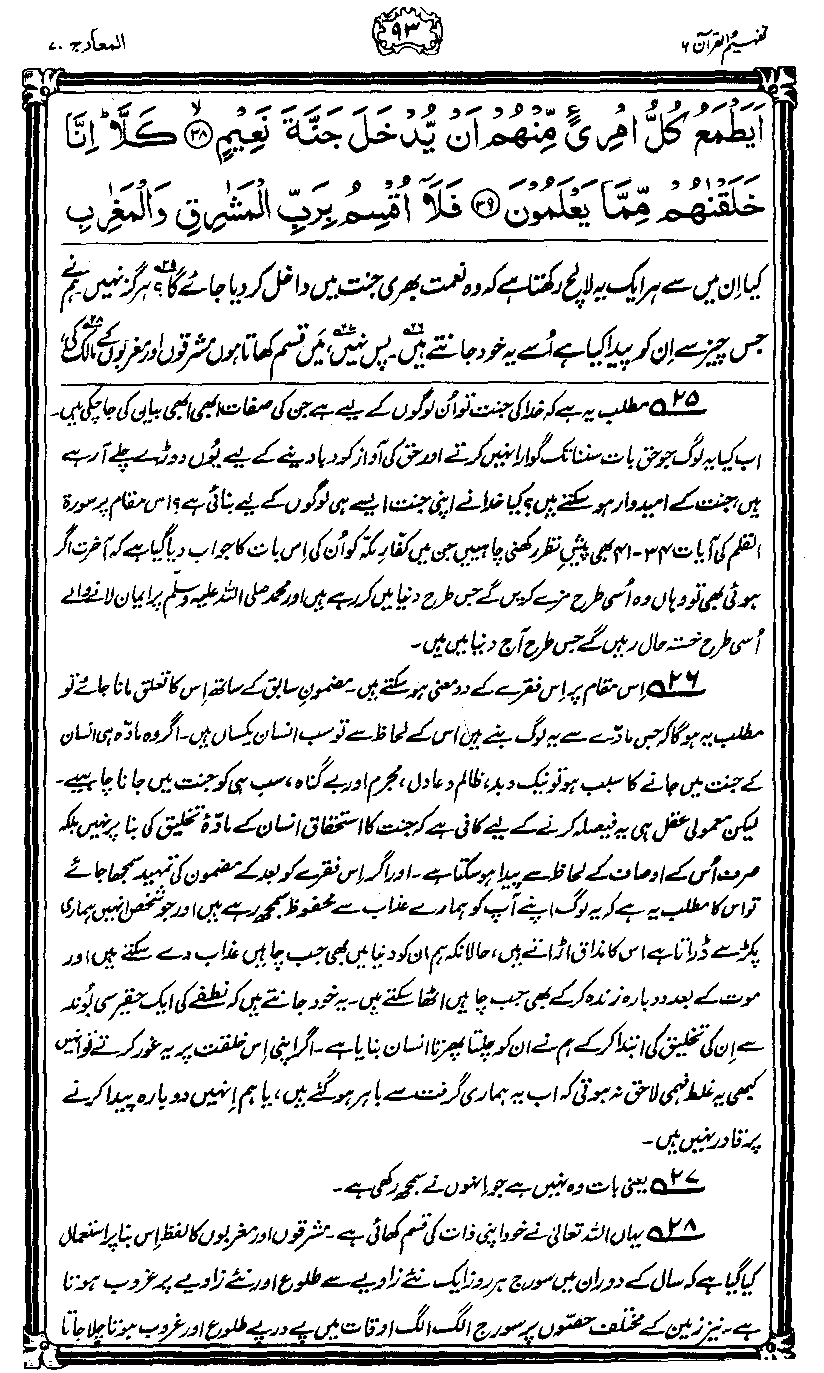 تفہیم القرآن ۶
۹۳
المعارج ۷۰
اَيَطْمَعُ كُلُّ امْرِئٍ مِّنْهُمْ اَنْ يُّدْخَلَ جَنَّةَ نَعِيْمٍ ۙ﴿۳۸﴾ كَلَّا ؕ اِنَّا
خَلَقْنٰهُمْ مِّمَّا يَعْلَمُوْنَ ﴿۳۹﴾ فَلَاۤ اُقْسِمُ بِرَبِّ الْمَشٰرِقِ وَالْمَغٰرِبِ
کیا اِن میں سے ہر ایک یہ لالچ رکھتا ہے کہ وہ نعمت بھری جنت میں داخل کر دیا جائے گا؟۲۵ ہرگز نہیں۔ ہم نے
جس چیز سے اِن کو پیدا کیا ہے اُسے یہ خود جانتے ہیں۲۶۔ پس نہیں۲۷، مَیں قسم کھاتا ہوں مشرقوں اور مغربوں کے مالک کی۲۸،
۲۵ مطلب یہ ہے کہ خدا کی جنت تو اُن لوگوں کے لیے ہے جن کی صفات ابھی ابھی بیان کی جا چکی ہیں۔
اب کیا یہ لوگ جو حق بات سننا تک گوارا نہیں کرتے اور حق کی آواز کو دبا دینے کے لیے یُوں دوڑے چلے آ رہے
ہیں، جنت کے امیدوار ہو سکتے ہیں؟ کیا خدا نے اپنی جنت ایسے ہی لوگوں کے لیے بنائی ہے؟ اس مقام پر سورۃ
القلم کی آیات ۳۴-۴۱ بھی پیشِ نظر رکھنی چاہییں جن میں کفارِ مکہ کو اُن کی اِس بات کا جواب دیا گیا ہے کہ آخرت اگر
ہوئی بھی تو وہاں وہ اُسی طرح مزے کریں گے جس طرح دنیا میں کر رہے ہیں اور محمد صلی اللہ علیہ وسلم پر ایمان لانے والے
اُسی طرح خستہ حال رہیں گے جس طرح آج دنیا میں ہیں۔
۲۶ اِس مقام پر اِس فقرے کے دو معنی ہو سکتے ہیں۔ مضمونِ سابق کے ساتھ اِس کا تعلق مانا جائے تو
مطلب یہ ہوگا کہ جس مادّے سے یہ لوگ بنے ہیں اس کے لحاظ سے تو سب انسان یکساں ہیں۔ اگر وہ مادّہ ہی انسان
کے جنت میں جانے کا سبب ہو تو نیک و بد، ظالم و عادل، مجرم اور بے گناہ، سب ہی کو جنت میں جانا چاہیے۔
لیکن معمولی عقل ہی یہ فیصلہ کرنے کے لیے کافی ہے کہ جنت کا استحقاق انسان کے مادّۂ تخلیق کی بنا پر نہیں بلکہ
صرف اُس کے اوصاف کے لحاظ سے پیدا ہو سکتا ہے۔ اور اگر اِس فقرے کو بعد کے مضمون کی تمہید سمجھا جائے
تو اس کا مطلب یہ ہے کہ یہ لوگ اپنے آپ کو ہمارے عذاب سے محفوظ سمجھ رہے ہیں اور جو شخص انہیں ہماری
پکڑ سے ڈراتا ہے اس کا مذاق اڑاتے ہیں، حالانکہ ہم ان کو دنیا میں بھی جب چاہیں عذاب دے سکتے ہیں اور
موت کے بعد دوبارہ زندہ کر کے بھی جب چاہیں اٹھا سکتے ہیں۔ یہ خود جانتے ہیں کہ نطفے کی ایک حقیر سی بُوند
سے اِن کی تخلیق کی ابتدا کر کے ہم نے ان کو چلتا پھرتا انسان بنایا ہے۔ اگر اپنی اِس خلقت پر یہ غور کرتے تو انہیں
کبھی یہ غلط فہمی لاحق نہ ہوتی کہ اب یہ ہماری گرفت سے باہر ہو گئے ہیں، یا ہم اِنہیں دوبارہ پیدا کرنے
پر قادر نہیں ہیں۔
۲۷ یعنی بات وہ نہیں ہے جو انہوں نے سمجھ رکھی ہے۔
۲۸ یہاں اللہ تعالیٰ نے خود اپنی ذات کی قسم کھائی ہے۔ مشرقوں اور مغربوں کا لفظ اِس بنا پر استعمال
کیا گیا ہے کہ سال کے دوران میں سورج ہر روز ایک نئے زاویے سے طلوع اور نئے زاویے پر غروب ہوتا
ہے۔ نیز زمین کے مختلف حصّوں پر سورج الگ الگ اوقات میں پے در پے طلوع اور غروب ہوتا چلا جاتا